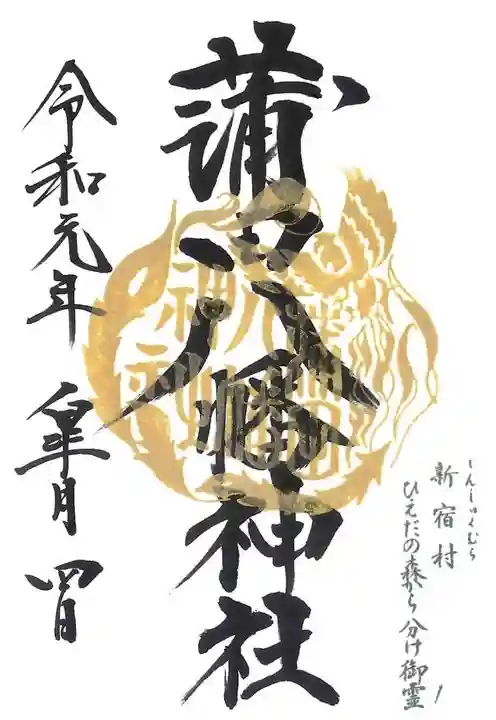 しんしゅくむら
新宿村
ひえだの森から分け御霊!
蒲田八幡神社
令和元年 皐月 四日